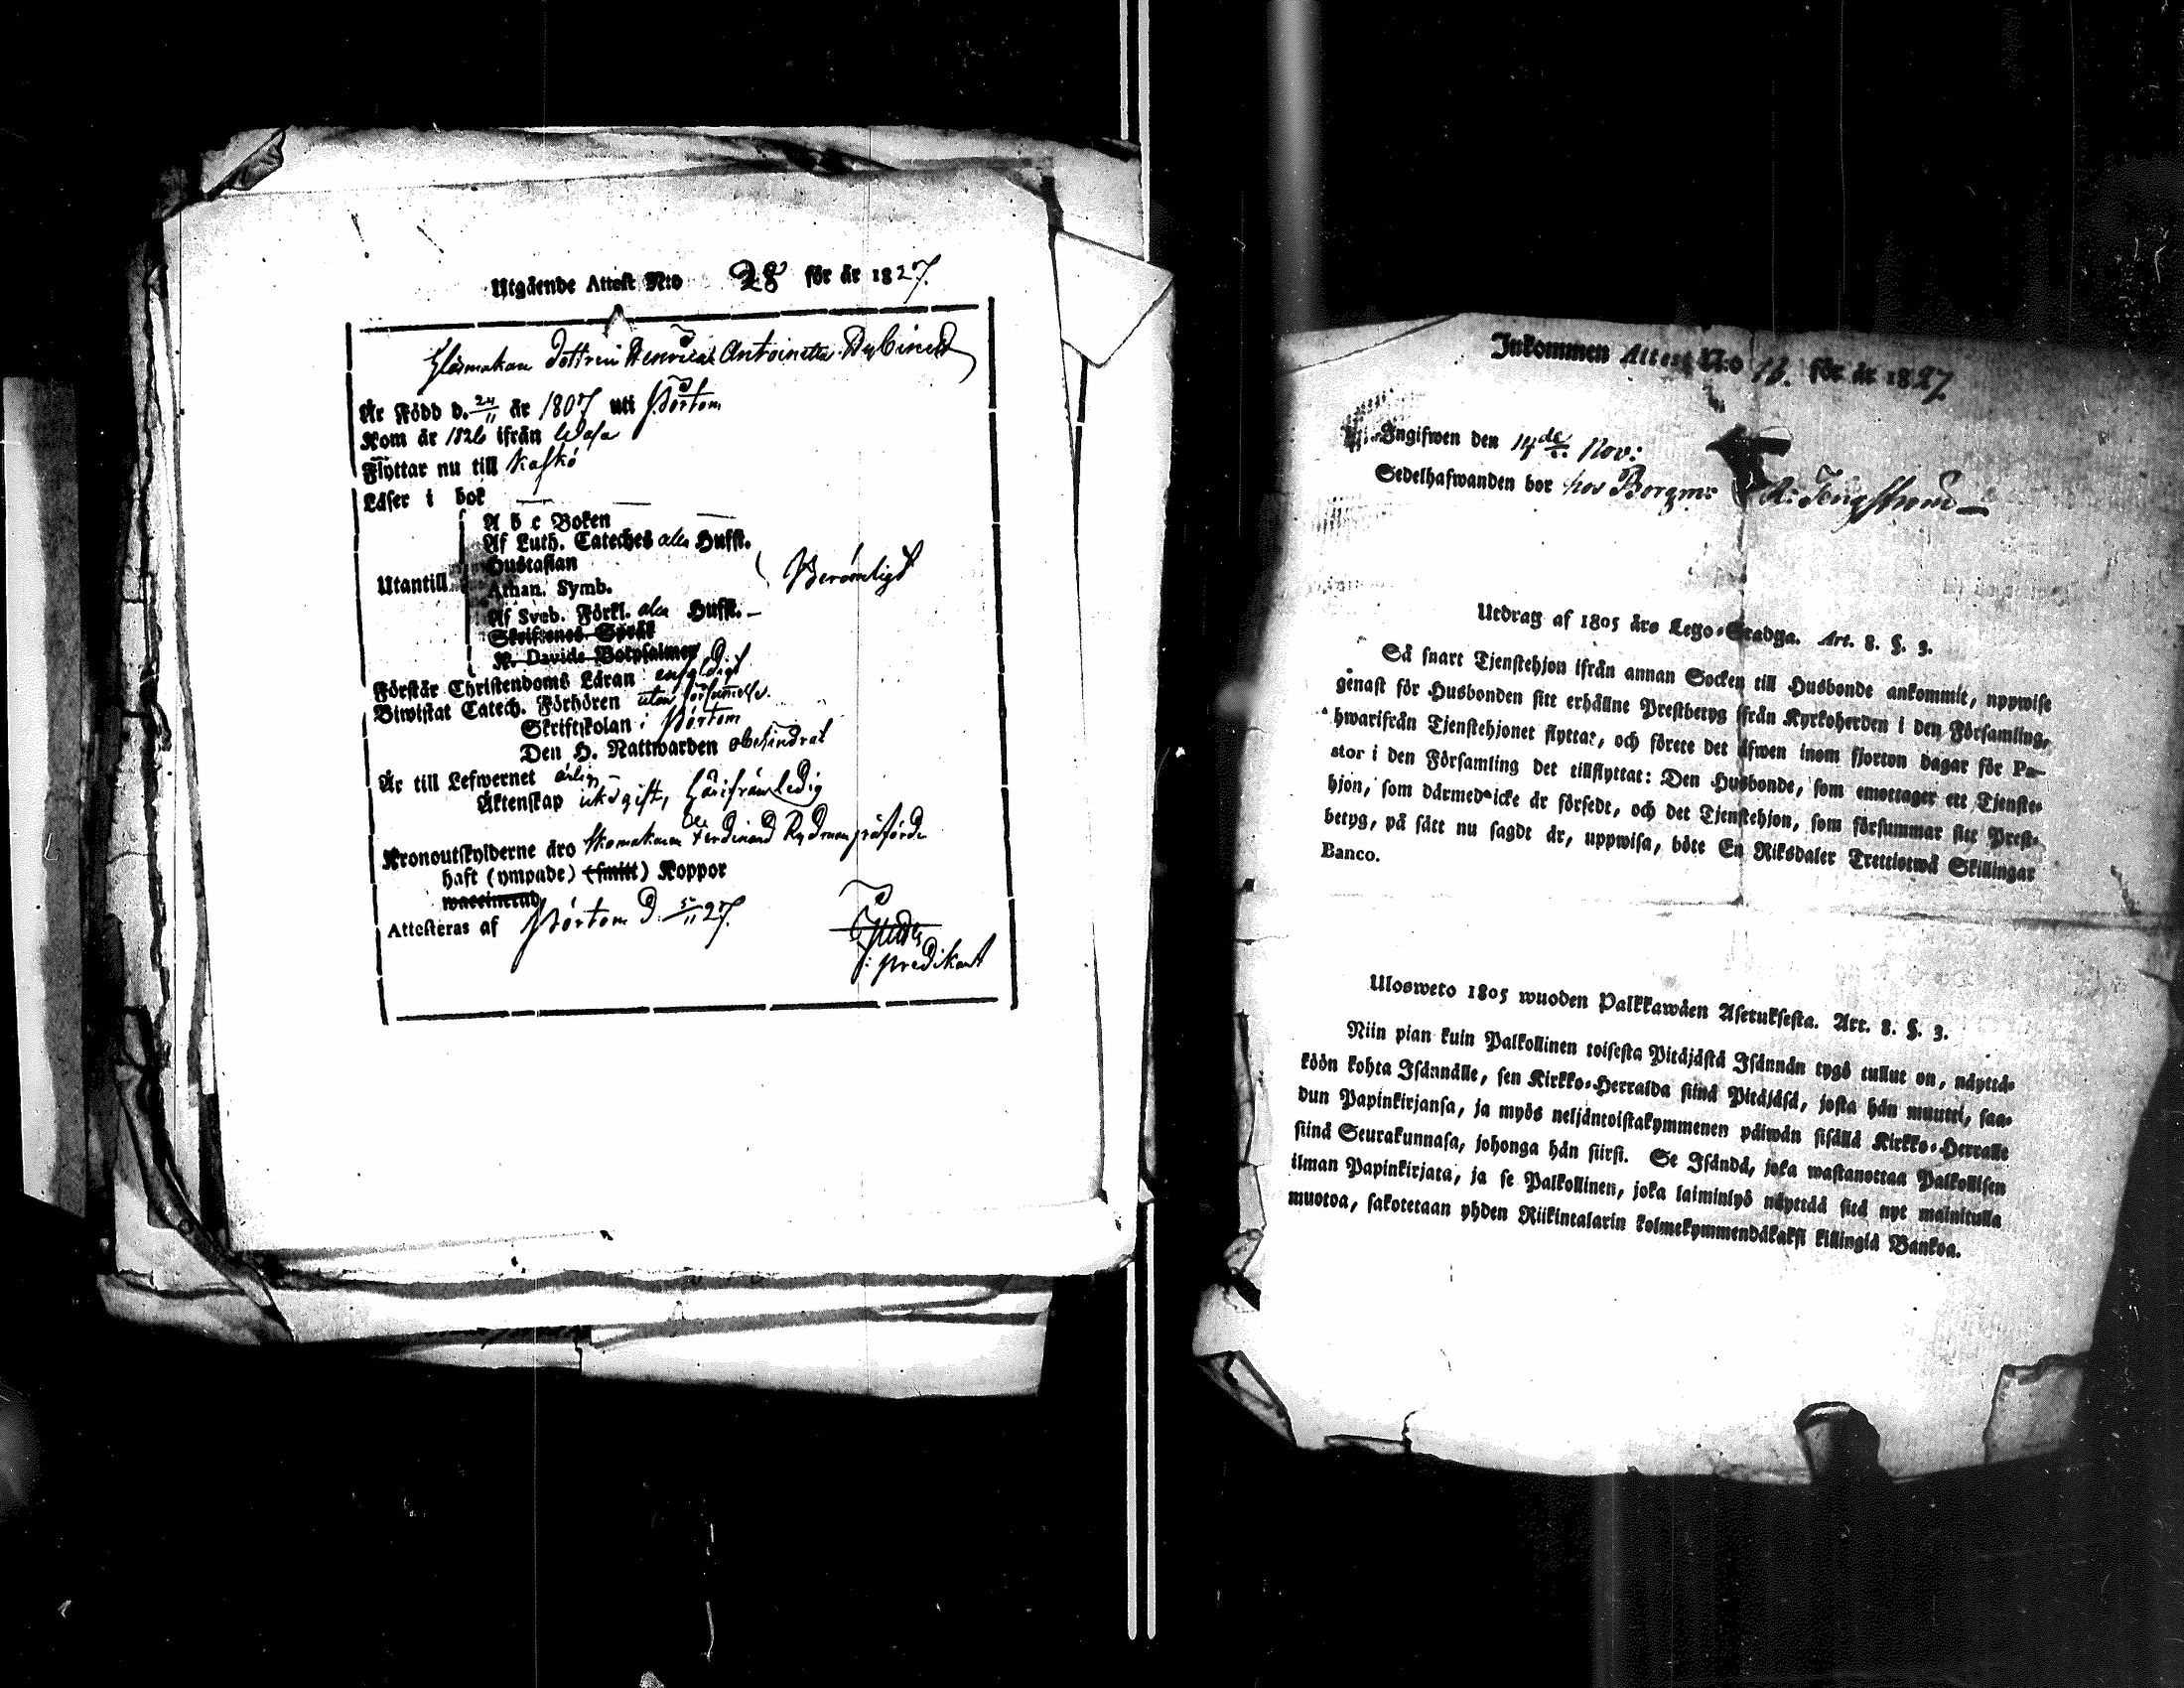 Utgående Attest N:o 28 för år 1827.
Glasmakare Dottren Henrica Antoinetta
Är Född d. 24/11 år 1807 uti Pörtom
Kom år 1826 ifrån Wasa
Flyttar nu till Kaskö
Läser i bok
A b c Boken
Af Luth. Cateches alla Hufst.
Hustaflan
Utantill
Athan. Symb.
Berömligt
Af Sveb. Förkl. alla Hufst.
Skriftenes Språk
K. Davids Botpsalmer
Förstår Christendoms Läran enfaldigt
Biwistat Catech. Förhören utan försummelse.
Skriftskolan i Pörtom
Den H. Nattwarden obehindrat
Är till Lefwernet ärlig
Äktenskap icke gift, härifrån ledig
Kronoutskylderne äro Skomakaren Ferdinand Rydman påförde
haft (ympade) (smitt) Koppor
vaccinerad
Attesteras af Pörtom d. 5/11 27.
predikant
Inkommen Attest N:o 13. för år 1827
Ingifwen den 14de Nov:
Sedelhafwanden bor hos Borgm: A: Tengström
Utdrag af 1805 års Lego-Stadga. Art. 8. §. 3.
Så snart Tjenstehjon ifrån annan Socken till Husbonde ankommit, uppwise
genast för Husbonden sitt erhållne Prestbetyg ifrån Kyrkoherden i den Församling,
hwarifrån Tjenstehjonet flyttat, och förete det äfwen inom fjorton dagar för Pa-
stor i den Församling det tillflyttat: Den Husbonde, som emottager ett Tjenste-
hjon, som därmed icke är försedt, och det Tjenstehjon, som försummar sitt Prest-
betyg, på sätt nu sagdt är, uppwisa, böte En Riksdaler Trettiotwå Skillingar
Banco.
Ulosweto 1805 wuoden Palkkawäen Asetuksesta. Art. 8. §. 3.
Niin pian kuin Palkollinen toisesta Pitäjästä Isännän tygö tullut on, näyttä-
köön kohta Isännälle, sen Kirkko-Herralda siinä Pitäjäsä, josta hän muutti, saa-
dun Papinkirjansa, ja myös neljäntoistakymmenen päiwän sisällä Kirkko-Herralle
siinä Seurakunnasa, johonga hän siirsi. Se Isändä, joka wastanottaa Palkollisen
ilman Papinkirjata, ja se Palkollinen, joka laiminlyö näyttää sitä nyt mainitulla
muotoa, sakotetaan yhden Riikintalarin kolmekymmendäkaksi killingiä Bankoa.